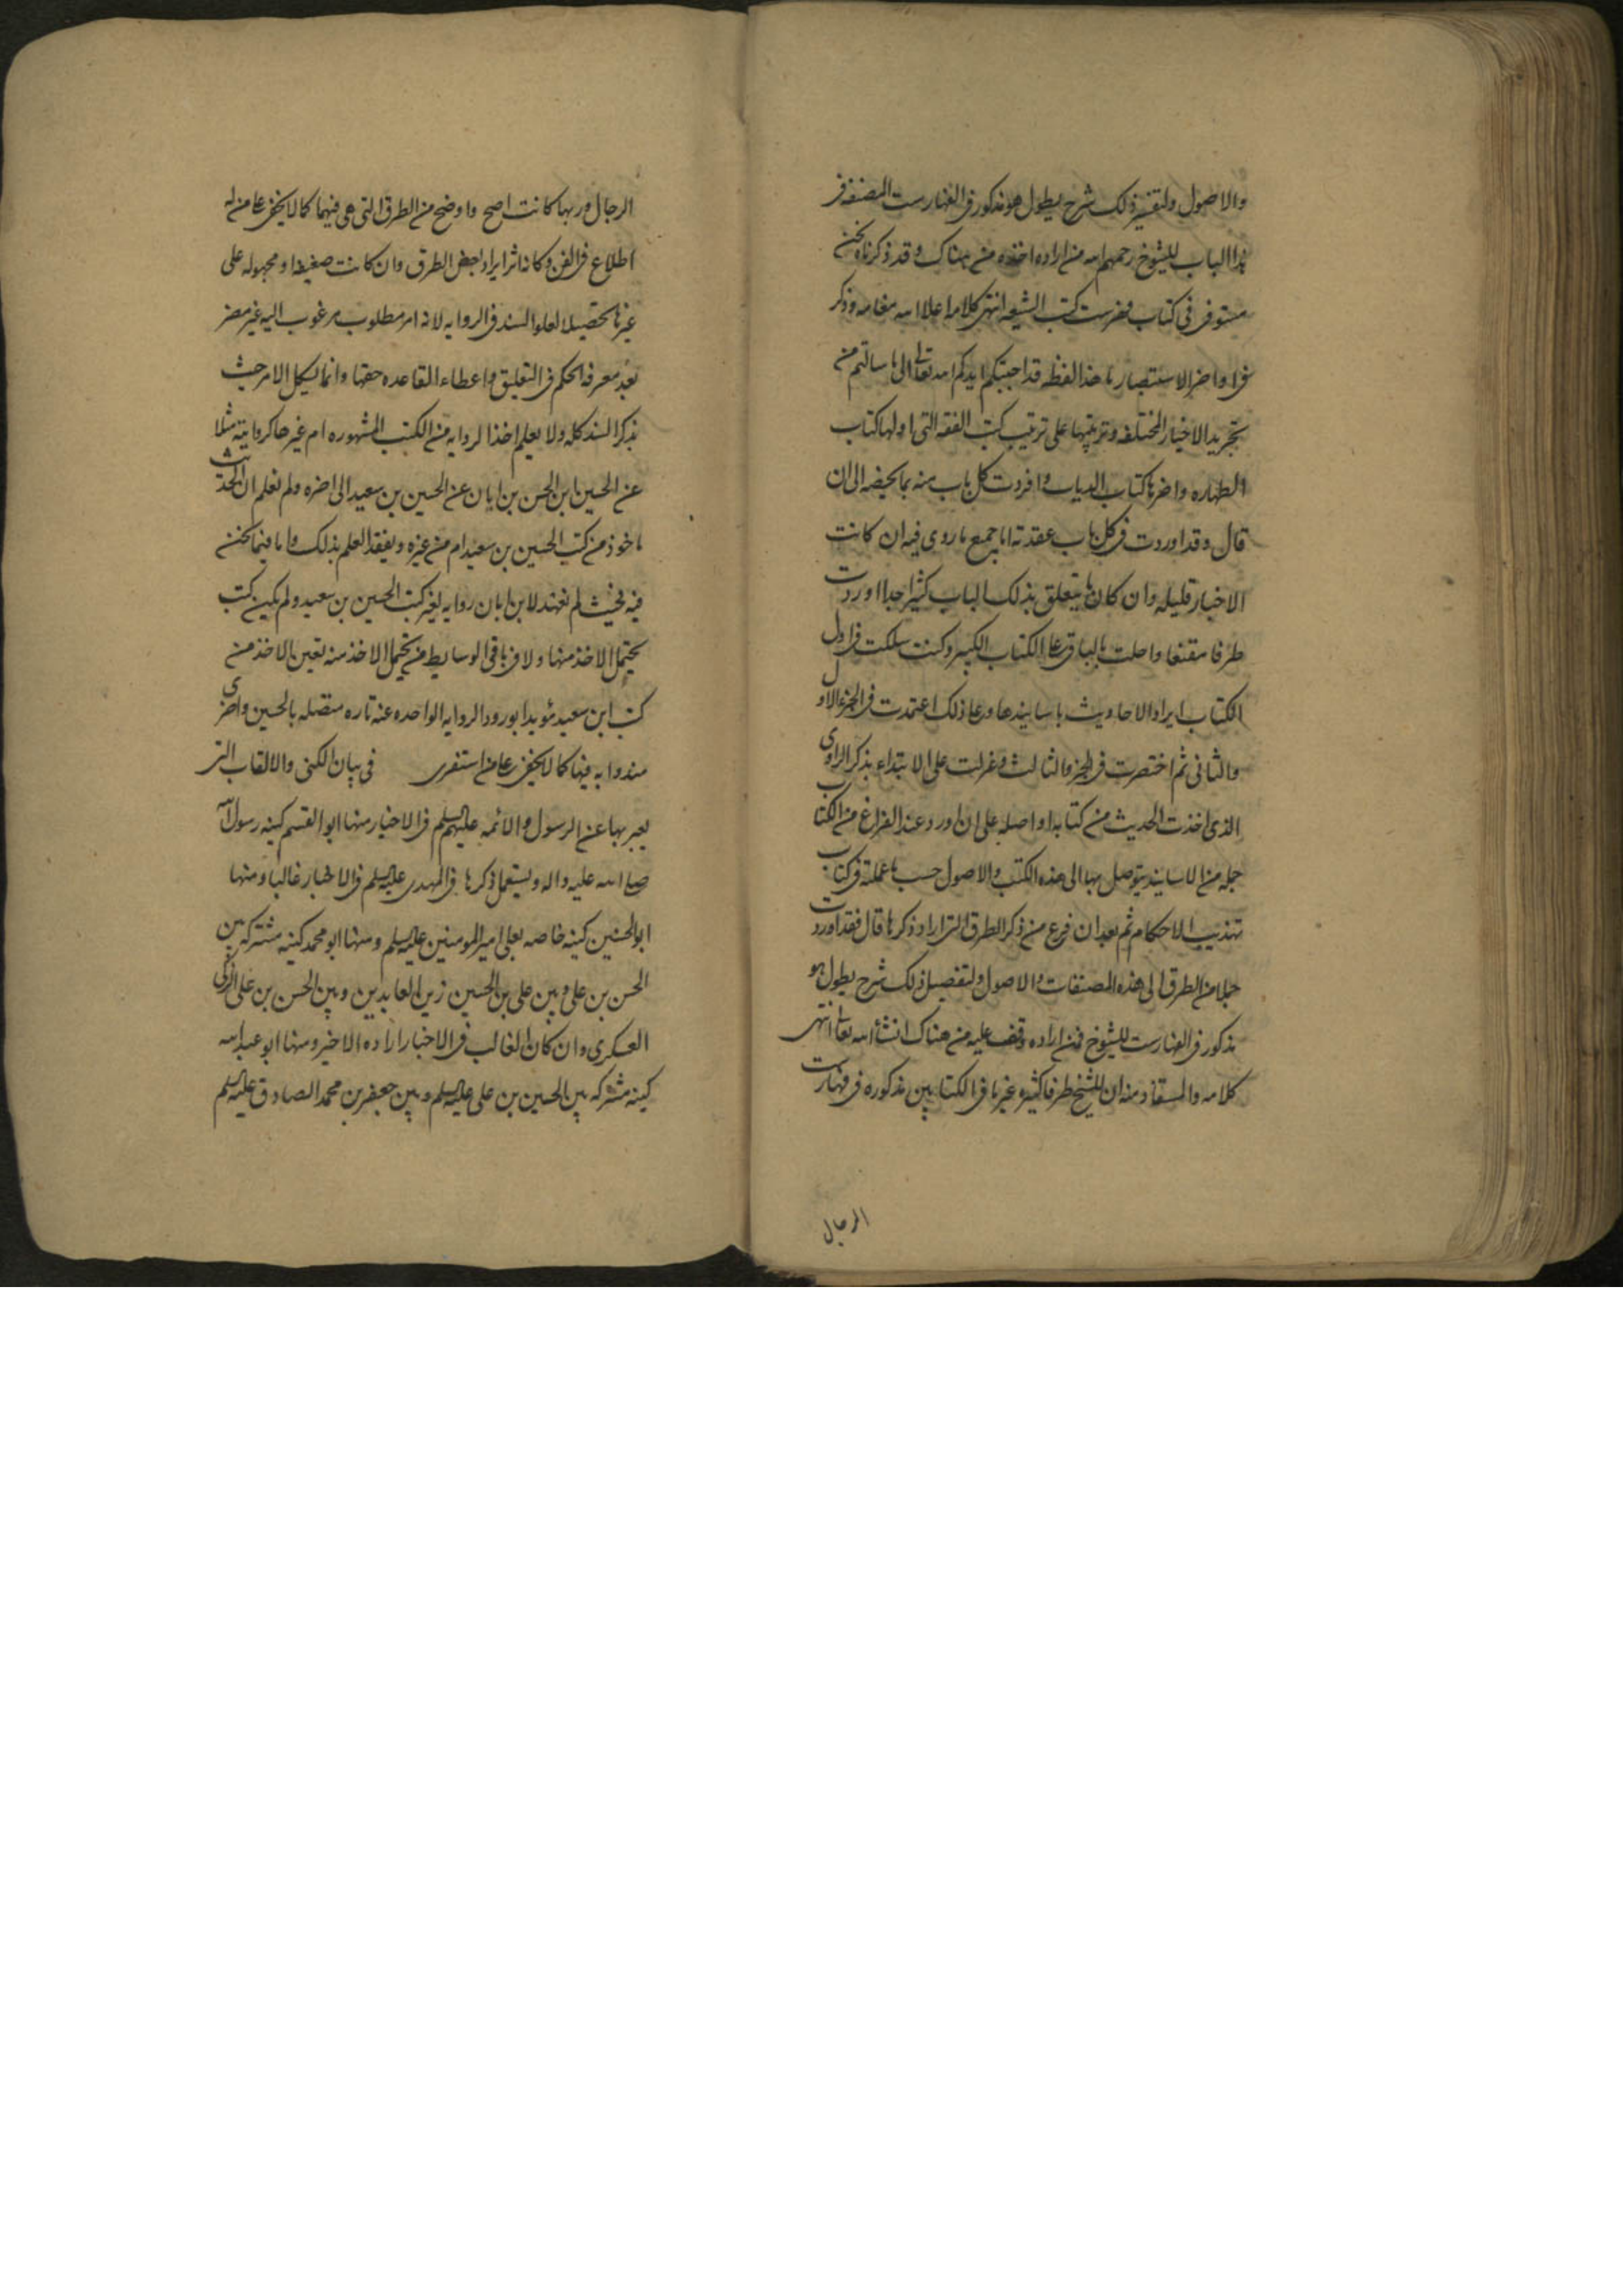 والاصول ولتفسير ذلك شرح يطول هو مذكور فى الفهارست المصنفه فى
هذا الباب للشيوخ رحمهم الله من اراده اخذه من هناك وقد ذكرناه نحن
مستوفى فى كتاب فهرست كتب الشيعه انتهى كلامه اعلا الله مقامه وذكر
فى اواخر الاستبصار ما هذا لفظه قد اجبتكم ايدكم الله تعالى الى ما سالتم من
تجريد الاخبار المختلفه وترتيبها على ترتيب كتب الفقه التى اولها كتاب
الطهاره واخرها كتاب الديات وافردت كل باب منه بما يخصه الى ان
قال وقد اوردت فى كل باب عقدته اما جميع ما روى فيه ان كانت
الاخبار قليله وان كان ما يتعلق بذلك الباب كثيرا جدا اوردت
طرفا مقنعا واحلت بالباقى على الكتاب الكبير وكنت سلكت فى اول
الكتاب ايراد الاحاديث باسانيدها وعلى ذلك اعتمدت فى الجزء الاول
والثانى ثم اختصرت فى الجزء الثالث وعولت على الابتداء بذكر الراوى
الذى اخذت الحديث من كتابه او اصله على ان اورد عند الفراغ من الكتاب
جمله من الاسانيد يتوصل بها الى هذه الكتب والاصول حسب ما عملته فى كتاب
تهذيب الاحكام ثم بعد ان فرغ من ذكر الطرق التى اراد ذكرها قال فقد اوردت
جملا من الطرق الى هذه المصنفات والاصول ولتفصيل ذلك شرح يطول هو
مذكور فى الفهارست للشيوخ فمن اراده وقف عليه من هناك انشأ الله تعالى انتهى
كلامه والمستفاد منه ان للشيخ طرفا كثيره غير ما فى الكتابين مذكوره فى فهارست
الرجال
الرجال وربها كانت اصح واوضح من الطرق التى هى فيهما كما لا يخفى على من له
اطلاع فى الفن وكانه اثر ايراد بعض الطرق وان كانت ضعيفه او مجهوله على
غيرها تحصيلا لعلو السند فى الروايه لانه امر مطلوب مرغوب اليه غير مضر
بعد معرفه الحكم فى التعليق واعطاء القاعده حقها وانما يشكل الامر حيث
يذكر السند كله ولا يعلم اخذ الروايه من الكتب المشهوره ام غيرها كروايته مثلا
عن الحسين ابن الحسن بن ابان عن الحسين بن سعيد الى اخره ولم نعلم ان الحديث
ماخوذ من كتب الحسين بن سعيد ام من غيره ويفقد العلم بذلك واما فيما نحن
فيه فحيث لم نعهد لابن ابان روايه لغير كتب الحسين بن سعيد ولم يكن كتب
يحتمل الاخذ منها ولا فى باقى الوسايط من يحتمل الاخذ منه تعين الاخذ من
كتب ابن سعيد مؤيدا بورود الروايه الواحده عنه تاره متصله بالحسين واخرى
مبدوا به فيها كما لا يخفى على من استقرى فى بيان الكنى والالقاب التى
يعبر بها عن الرسول والائمه عليهم السلم فى الاخبار منها ابو القسم كنيه رسول الله
صلى الله عليه واله ويستعمل ذكرها فى المهدى عليه السلم فى الاخبار غالبا ومنها
ابو الحسنين كنيه خاصه بعلى امير المومنين عليه السلم ومنها ابو محمد كنيه مشتركه بين
الحسن بن على وبين على بن الحسين زين العابدين وبين الحسن بن على الزكى
العسكرى وان كان الغالب فى الاخبار اراده الاخير ومنها ابو عبد الله
كنيه مشتركه بين الحسين بن على عليه السلم وبين جعفر بن محمد الصادق عليه السلم